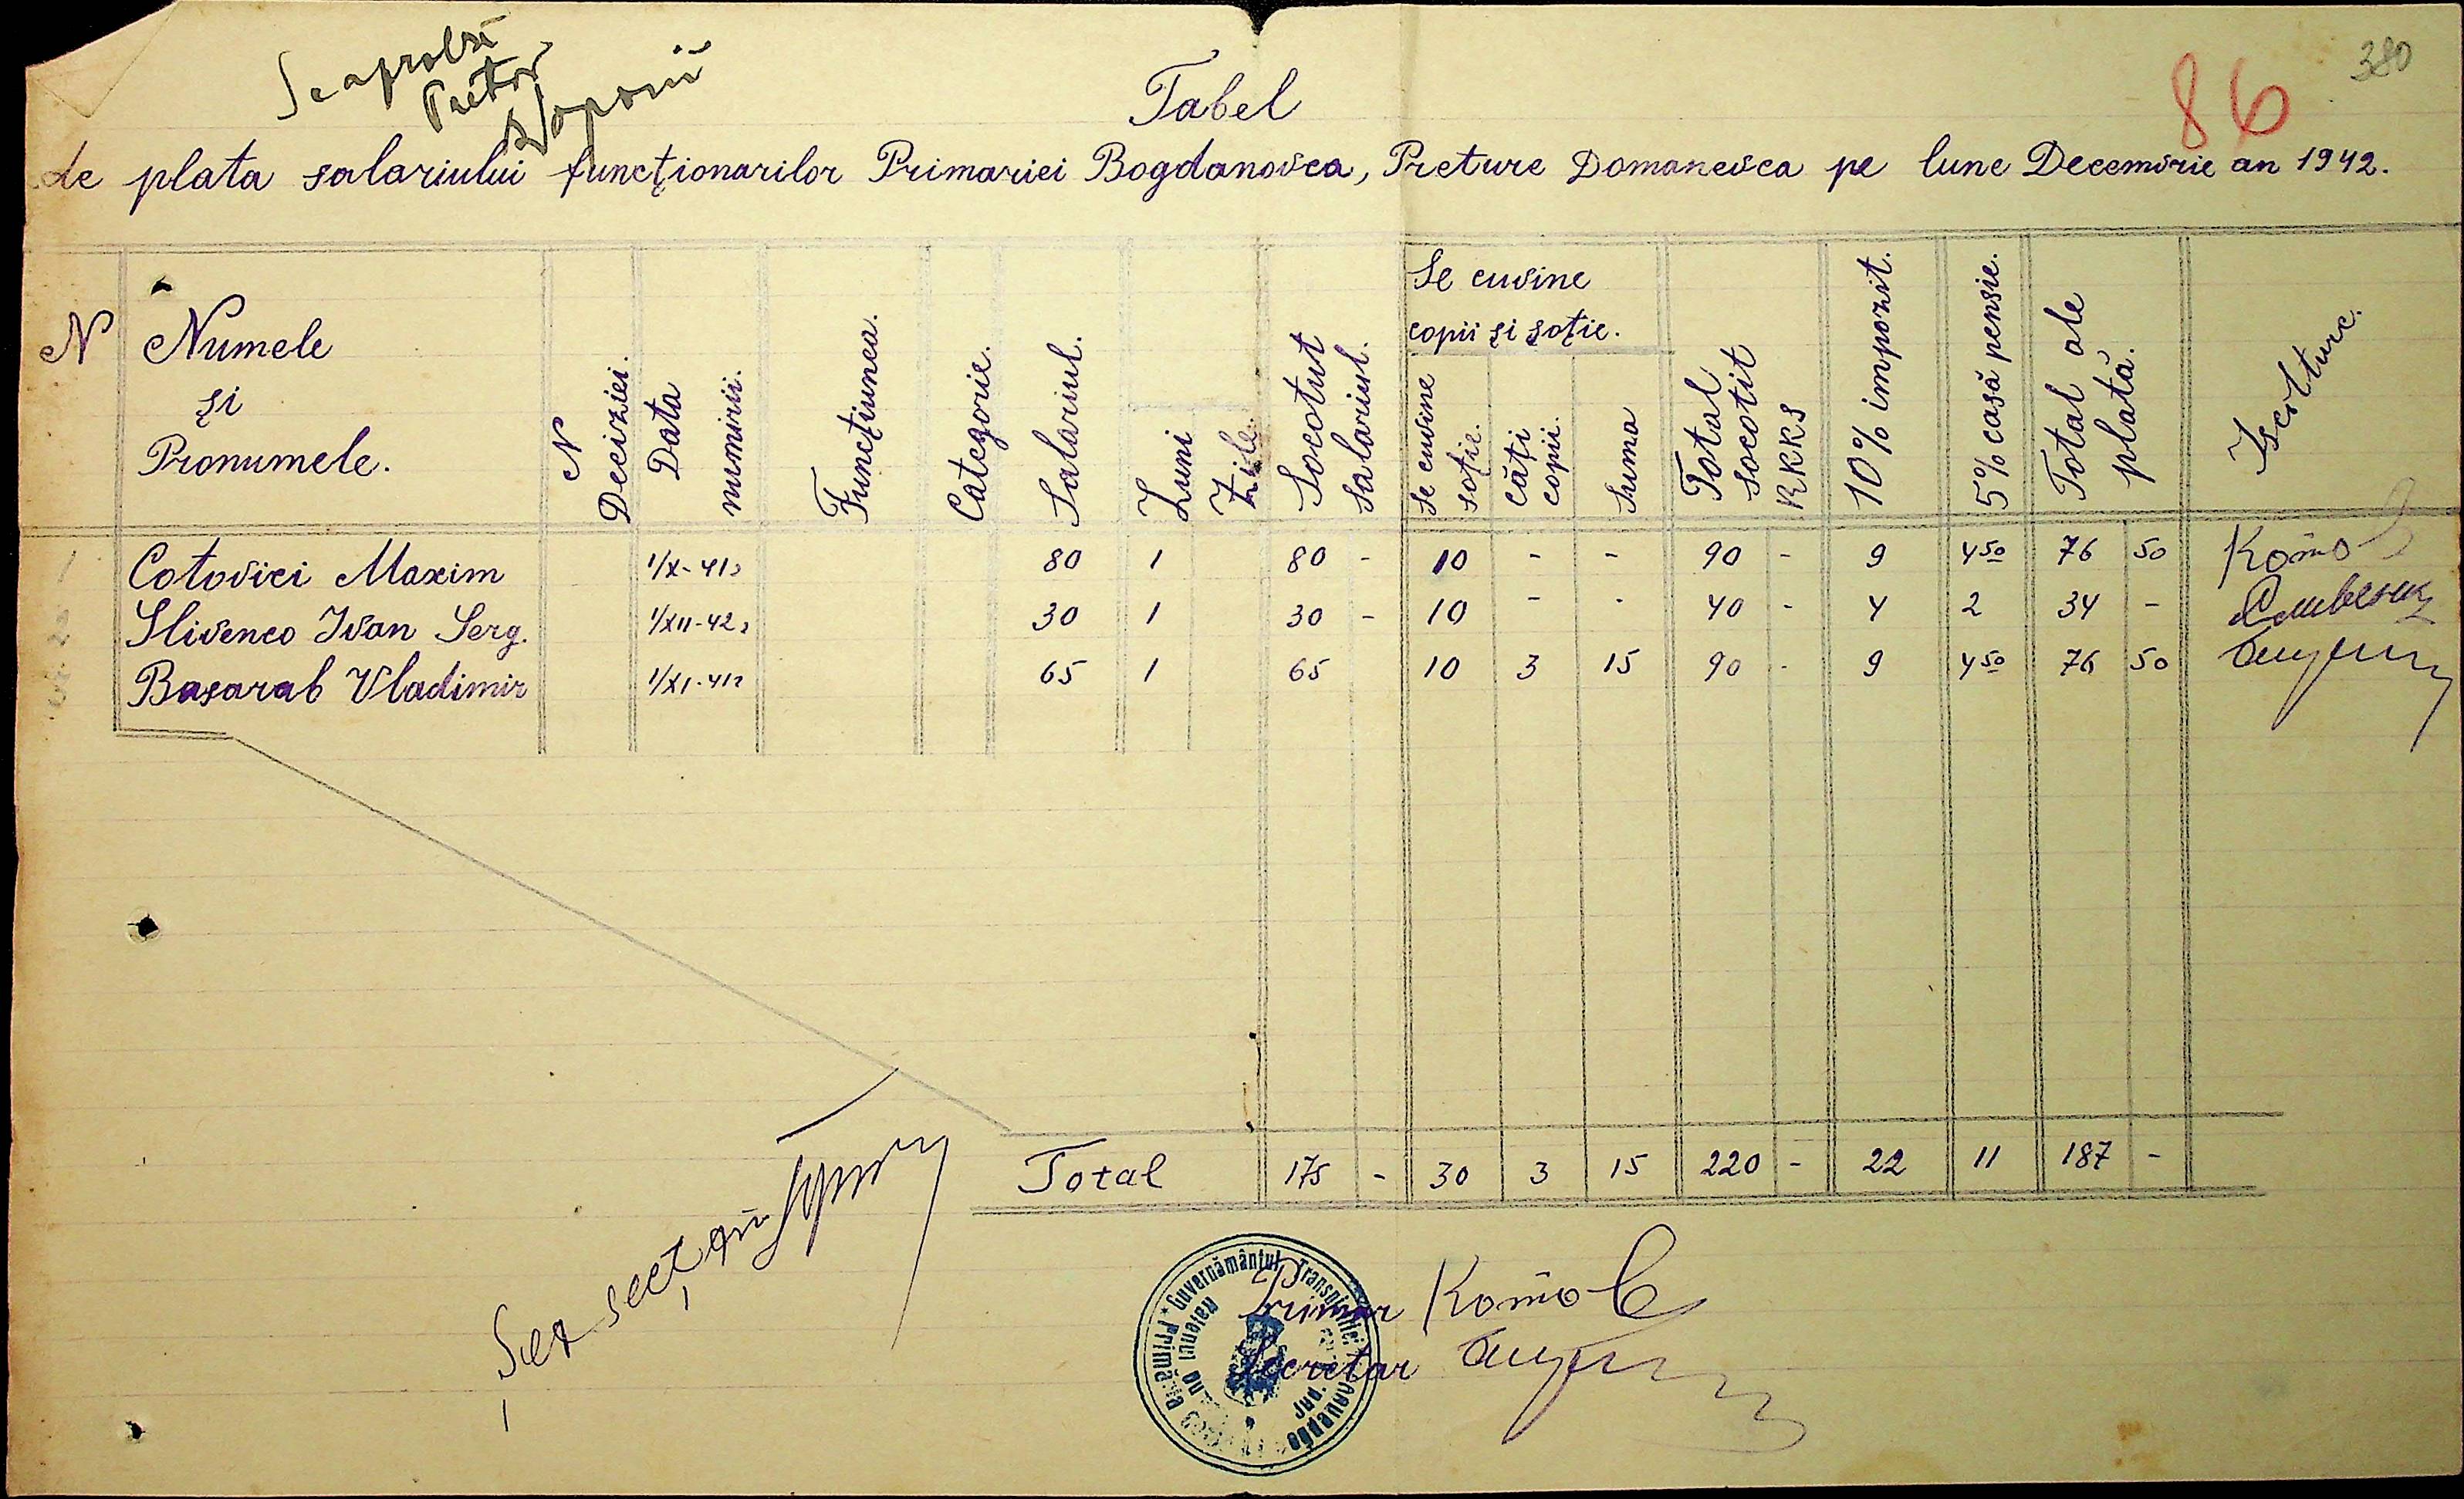 380
86
Se aprobă
Pretor
Tabel
de plata salariului funcţionarilor Primariei Bogdanovca, Preture Domanevca pe lune Decemvrie an 1942.
N
Numele
şi
Pronumele.
N
Deciziei.
Data
numirii.
Funcţiunea.
Categorie.
Salariul.
Luni
Zile.
Socotut
salariul.
Se cuvine
copii şi soţie.
se cuvine
soţie.
căţi
copii.
Suma
Total
socotit
RKKS
10% impozit.
5% casă pensie.
Total ale
plată.
Iscălture.
Cotovici Maxim 1/X-41 80 1 80 - 10 - - 90 - 9 4 50 76 50
Slivenco Ivan Serg. 1/XII-42 30 1 30 - 10 - - 40 - 4 2 34 -
Basarab Vladimir 1/XI-41 65 1 65 10 3 15 90 - 9 4 50 76 50
Total 175 - 30 3 15 220 - 22 11 187 -
Primar Котов
Secretar
Guvernământul Transnistriei